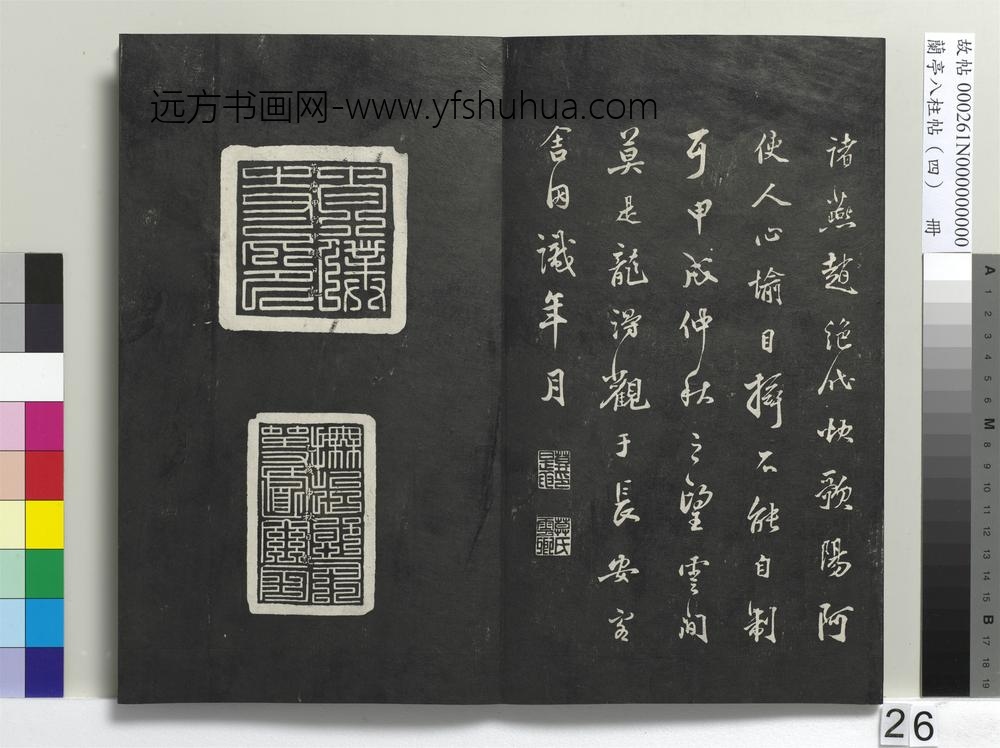 远方书画网-www.yfshuhua.com
故帖 000261N000000000
蘭亭八柱帖（四） 冊
諸燕趙絕代妙歌陽阿
使人心愉目搖不能自制
耳甲戌仲秋之望雲間
莫是龍得觀于長安客
舍因識年月
A 1 2 3 4 5 6 M 8 9 10 11 12 13 14 15 B 17 18 19
26